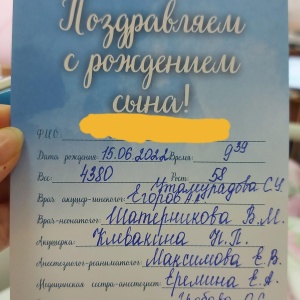 Поздравляем
с рождением
сына!
ФИО
Дата рождения 15.06.2022 Время 9 39
Вес 4380 Рост 58
Утамурадова С.Ч.
Врач акушер-гинеколог Егоров А.
Врач-неонатолог Шатерникова В.М.
Акушерка Клевакина Н.П.
Анестезиолог-реаниматолог Максимова Е.В.
Медицинская сестра-анестезист Еремина Е.А.